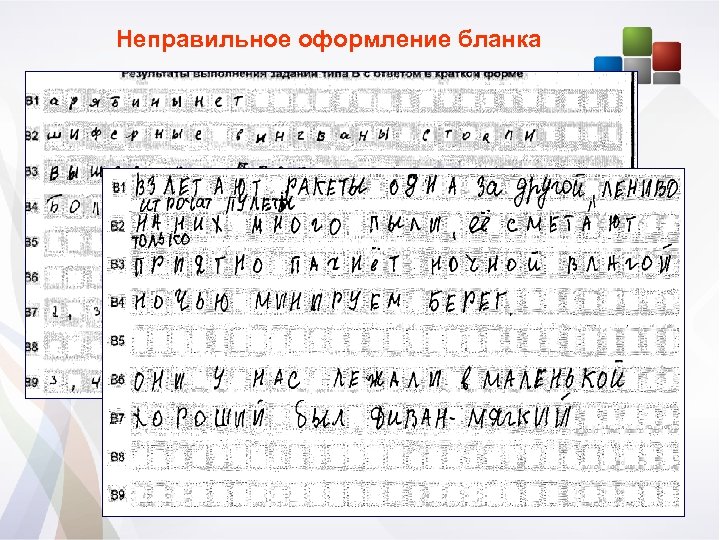 Неправильное оформление бланка
Результаты выполнения заданий типа В с ответом в краткой форме
В1 а р я б и н ы н е т
В2 ш и ф е р н ы е в и н г в а н ы с т о я л и
В3 В Ы Ш
В4 Б О Л
В5
В6
В7 1, 3
В8
В9 3, 4
В1 ВЗЛЕТАЮТ РАКЕТЫ ОДНА За другой, ЛЕНИВО
СТРОЧАТ ПУЛЕТЫ
В2 НА НИХ МНОГО ПЫЛИ, её СМЕТАЮТ
ТОЛЬКО
В3 ПРИЯТНО ПАХНЁТ НОЧНОЙ ВЛАГОЙ
В4 НОЧЬЮ МИНИРУЕМ БЕРЕГ.
В5
В6 ОНИ У НАС ЛЕЖАЛИ в МАЛЕНЬКОЙ
В7 ХОРОШИЙ был ДИВАН-МЯГКИЙ
В8
В9